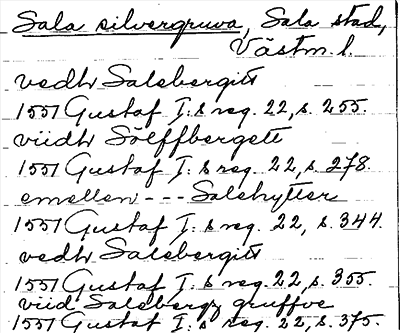 Sala silvergruva, Sala stad,
Västm. l.
vedh Salebergitt
1551 Gustaf I:s reg. 22, s. 255.
viidh Sölffbergett
1551 Gustaf I:s reg. 22, s. 278.
emellen --- Salehytter
1551 Gustaf I:s reg. 22, s. 344.
vedh Salebergitt
1551 Gustaf I:s reg. 22, s. 355.
viid Salebergz gruffve
1551 Gustaf I:s reg. 22, s. 375.